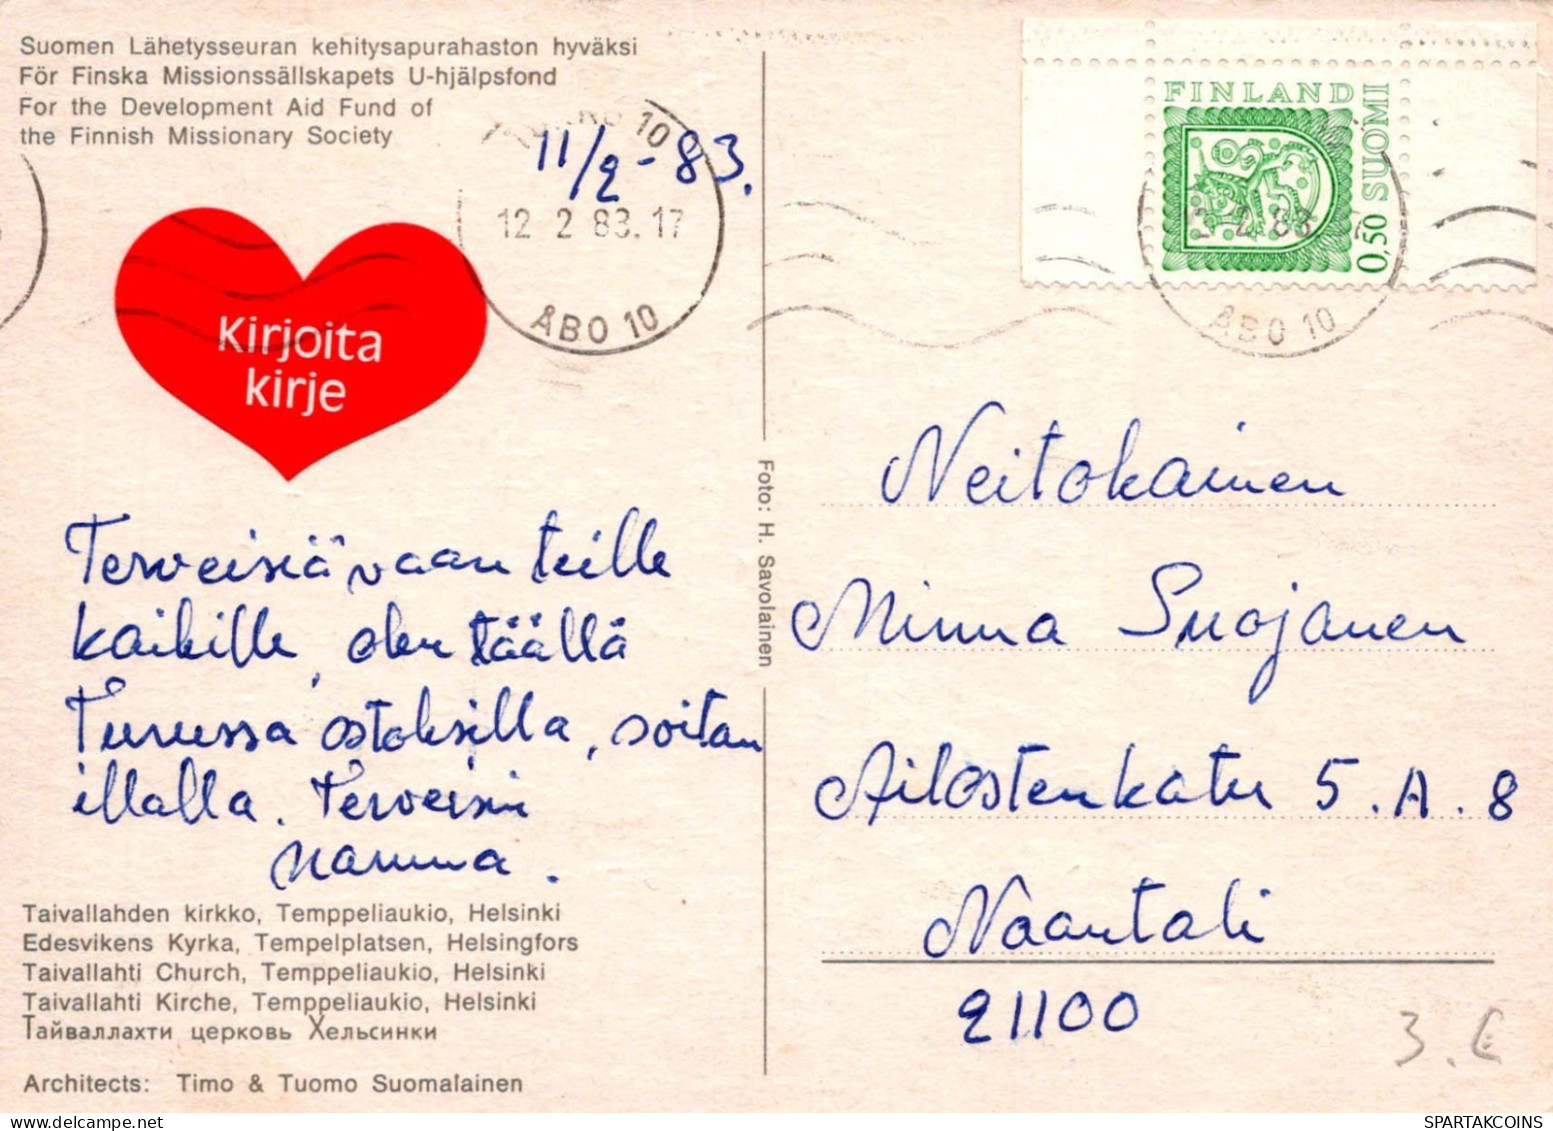 Suomen Lähetysseuran kehitysapurahaston hyväksi
För Finska Missionssällskapets U-hjälpsfond
For the Development Aid Fund of
the Finnish Missionary Society
10
11/2-83.
12 2 83.17
ÅBO 10
Kirjoita
kirje
FINLAND
SUOMI
0,50
2 83
ÅBO 10
Terveisiä vaan teille
kaikille, olen täällä
Turussa ostoksilla, soitan
illalla. Terveisin
mamma.
Foto: H. Savolainen
Neitokainen
Minna Suojanen
Ailostenkatu 5.A.8
Naantali
21100
3.€
Taivallahden kirkko, Temppeliaukio, Helsinki
Edesvikens Kyrka, Tempelplatsen, Helsingfors
Taivallahti Church, Temppeliaukio, Helsinki
Taivallahti Kirche, Temppeliaukio, Helsinki
Тайваллахти церковь Хельсинки
Architects: Timo & Tuomo Suomalainen
SPARTAKCOINS